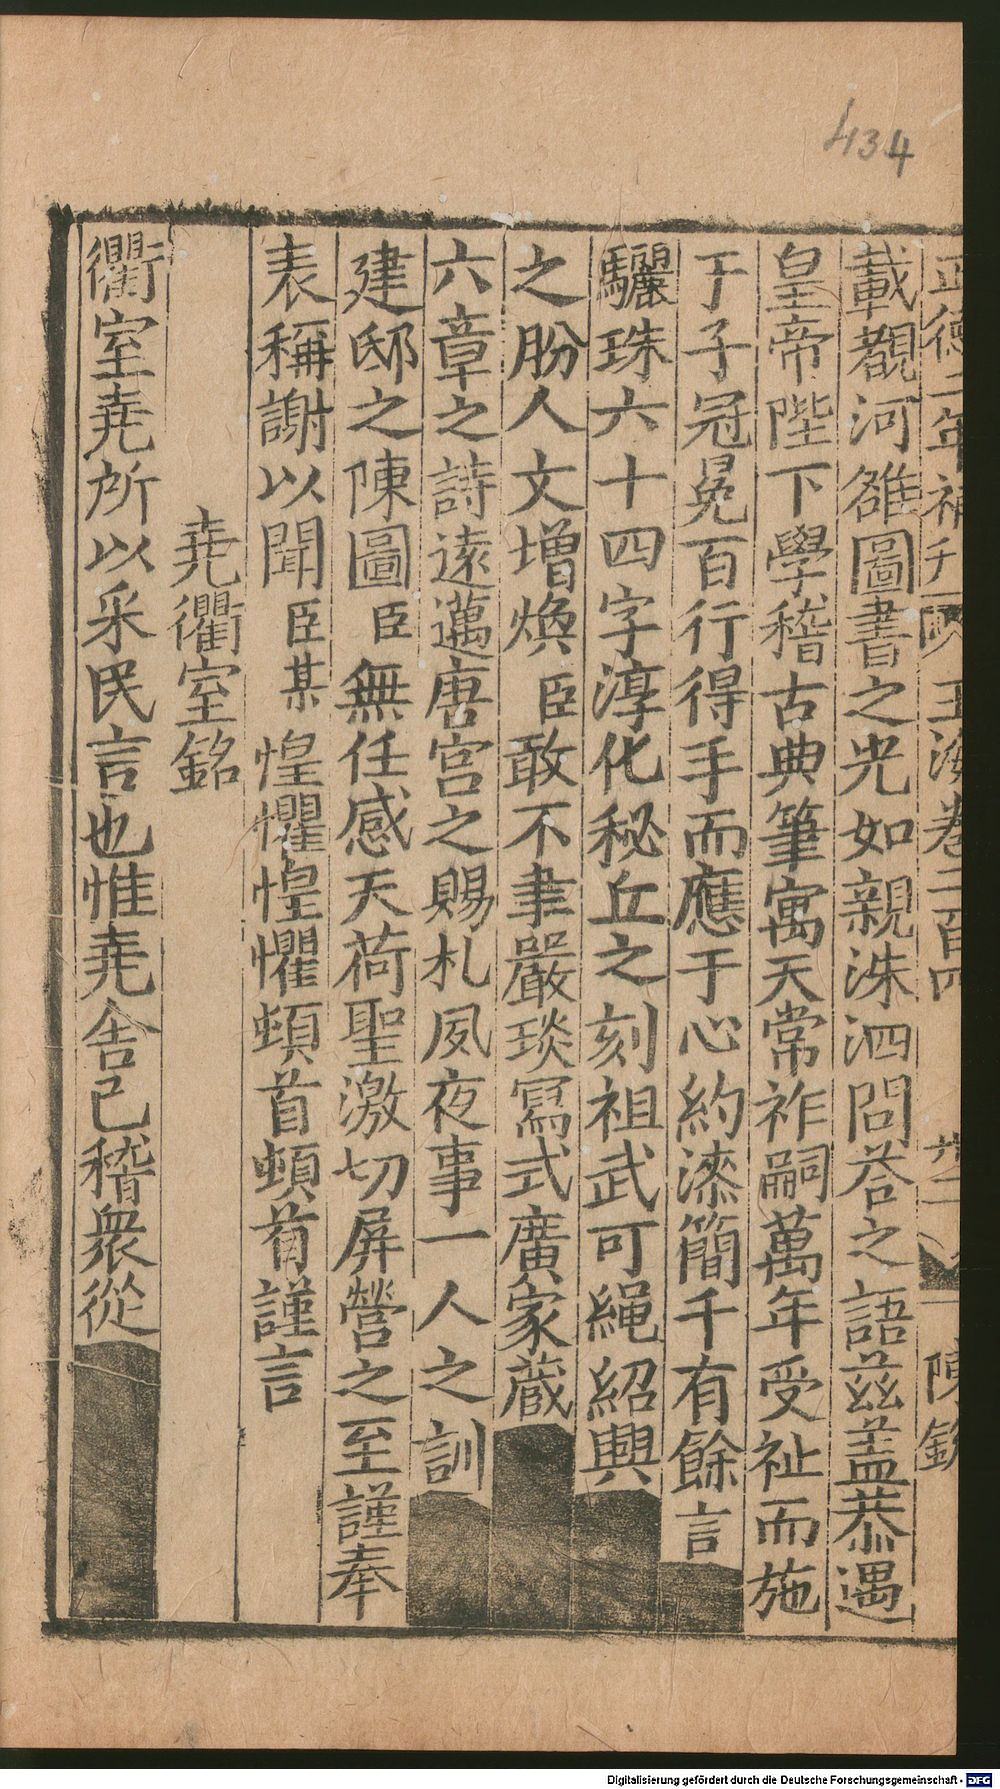 434
正德二年補刊 玉海卷二百四 六二 陳欽
載覩河雒圖書之光如親洙泗問荅之語茲蓋恭遇
皇帝陛下學稽古典筆寓天常祚嗣萬年受祉而施
于子冠冕百行得手而應于心約漆簡千有餘言
驪珠六十四字淳化秘丘之刻祖武可繩紹興
之肦人文增煥臣敢不聿嚴琰寫式廣家蔵
六章之詩遠邁唐宮之賜札夙夜事一人之訓
建邸之陳圖臣無任感天荷聖激切屏營之至謹奉
表稱謝以聞臣某惶懼惶懼頓首頓首謹言
堯衢室銘
衢室堯所以采民言也惟堯舍己稽衆從
Digitalisierung gefördert durch die Deutsche Forschungsgemeinschaft - DFG